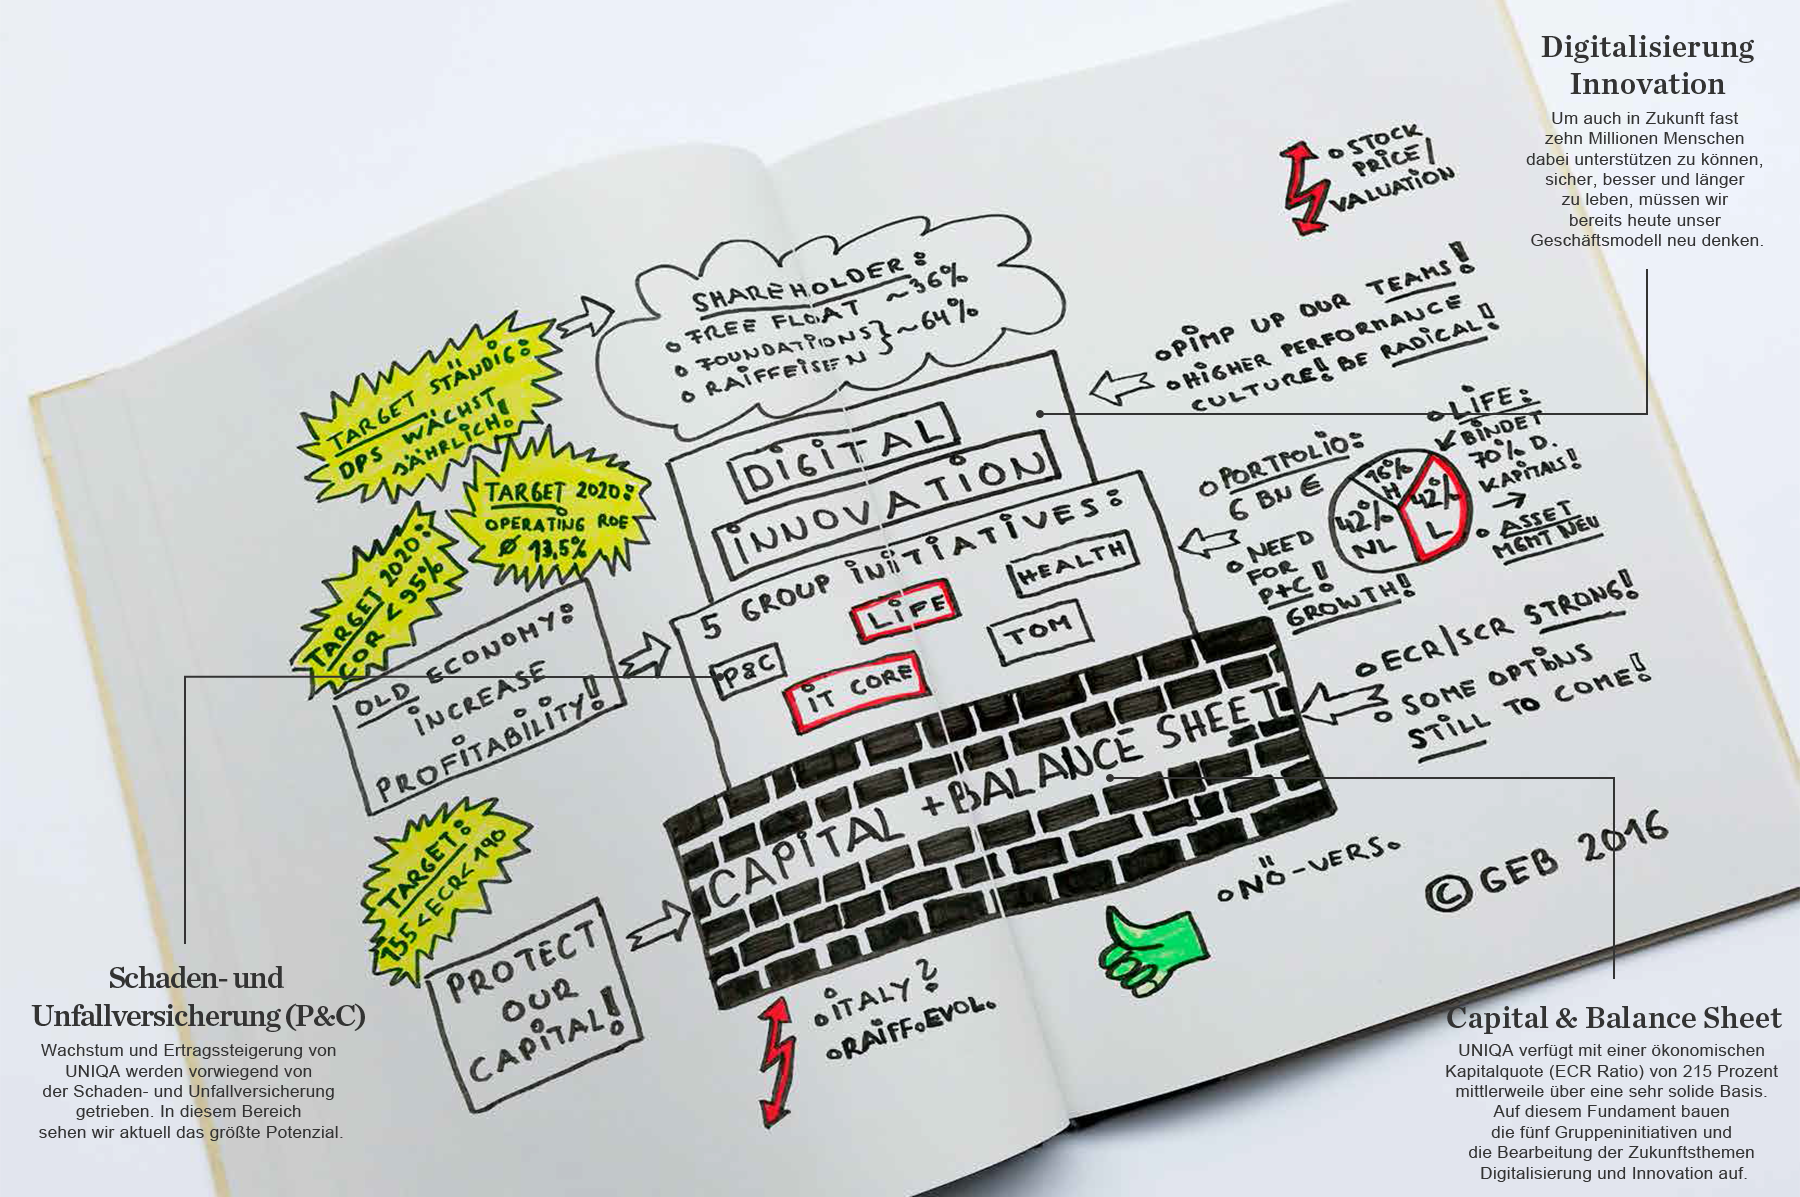 Digitalisierung
Innovation
Um auch in Zukunft fast
zehn Millionen Menschen
dabei unterstützen zu können,
sicher, besser und länger
zu leben, müssen wir
bereits heute unser
Geschäftsmodell neu denken.
STOCK
PRICE/
VALUATION
SHAREHOLDER:
FREE FLOAT ~36%
FOUNDATIONS } ~64%
RAIFFEISEN
TARGET STÄNDIG:
DPS WÄCHST
JÄHRLICH!
TARGET 2020:
OPERATING ROE
Ø 13,5%
TARGET 2020:
COR < 95%
OLD ECONOMY:
INCREASE
PROFITABILITY!
TARGET:
155 < ECR < 190
PROTECT
OUR
CAPITAL!
DIGITAL
INNOVATION
5 GROUP INITIATIVES:
LIFE
HEALTH
P&C
IT CORE
TOM
CAPITAL + BALANCE SHEET
PIMP UP OUR TEAMS!
HIGHER PERFORMANCE
CULTURE! BE RADICAL!
PORTFOLIO:
6 BN €
NEED
FOR
P+C!
GROWTH!
16%
H
42%
NL
42%
L
LIFE:
BINDET
70% D.
KAPITALS!
→
ASSET
MGMT NEU
ECR/SCR STRONG!
SOME OPTIONS
STILL TO COME!
NÖ-VERS.
ITALY?
RAIFF.EVOL.
© GEB 2016
Schaden- und
Unfallversicherung (P&C)
Wachstum und Ertragssteigerung von
UNIQA werden vorwiegend von
der Schaden- und Unfallversicherung
getrieben. In diesem Bereich
sehen wir aktuell das größte Potenzial.
Capital & Balance Sheet
UNIQA verfügt mit einer ökonomischen
Kapitalquote (ECR Ratio) von 215 Prozent
mittlerweile über eine sehr solide Basis.
Auf diesem Fundament bauen
die fünf Gruppeninitiativen und
die Bearbeitung der Zukunftsthemen
Digitalisierung und Innovation auf.